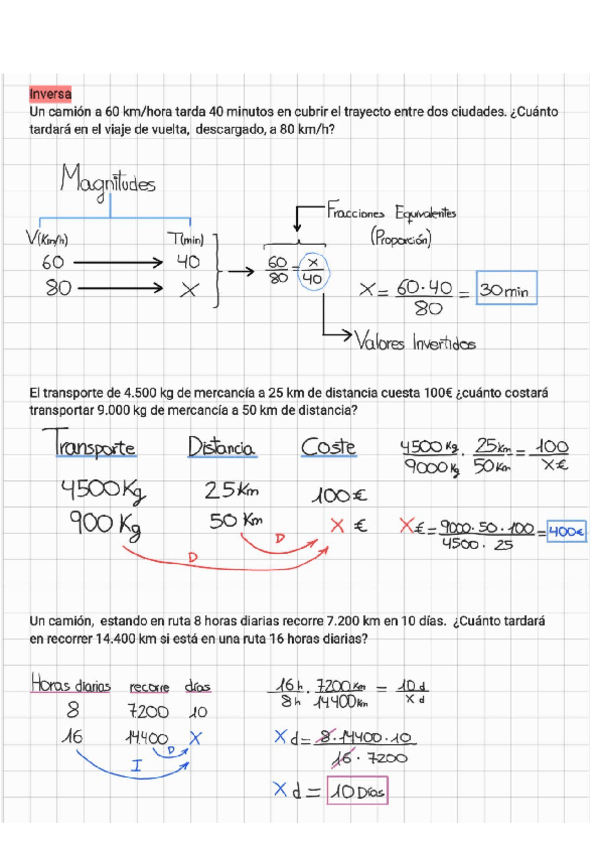 Inversa
Un camión a 60 km/hora tarda 40 minutos en cubrir el trayecto entre dos ciudades. ¿Cuánto
tardará en el viaje de vuelta, descargado, a 80 km/h?
Magnitudes
V(Km/h) T(min)
60 40
80 X
60/80 = x/40
Fracciones Equivalentes
(Proporción)
X = 60·40/80 = 30 min
Valores Invertidos
El transporte de 4.500 kg de mercancía a 25 km de distancia cuesta 100€ ¿cuánto costará
transportar 9.000 kg de mercancía a 50 km de distancia?
Transporte Distancia Coste
4500 Kg 25 Km 100 €
900 Kg 50 Km X €
D
D
4500 Kg/9000 Kg · 25 Km/50 Km = 100/X €
X € = 9000·50·100/4500·25 = 400€
Un camión, estando en ruta 8 horas diarias recorre 7.200 km en 10 días. ¿Cuánto tardará
en recorrer 14.400 km si está en una ruta 16 horas diarias?
Horas diarias recorre días
8 7200 10
16 14.400 X
D
I
16 h/8 h · 7200 Km/14400 Km = 10 d/X d
X d = 8·14400·10/16·7200
X d = 10 Días